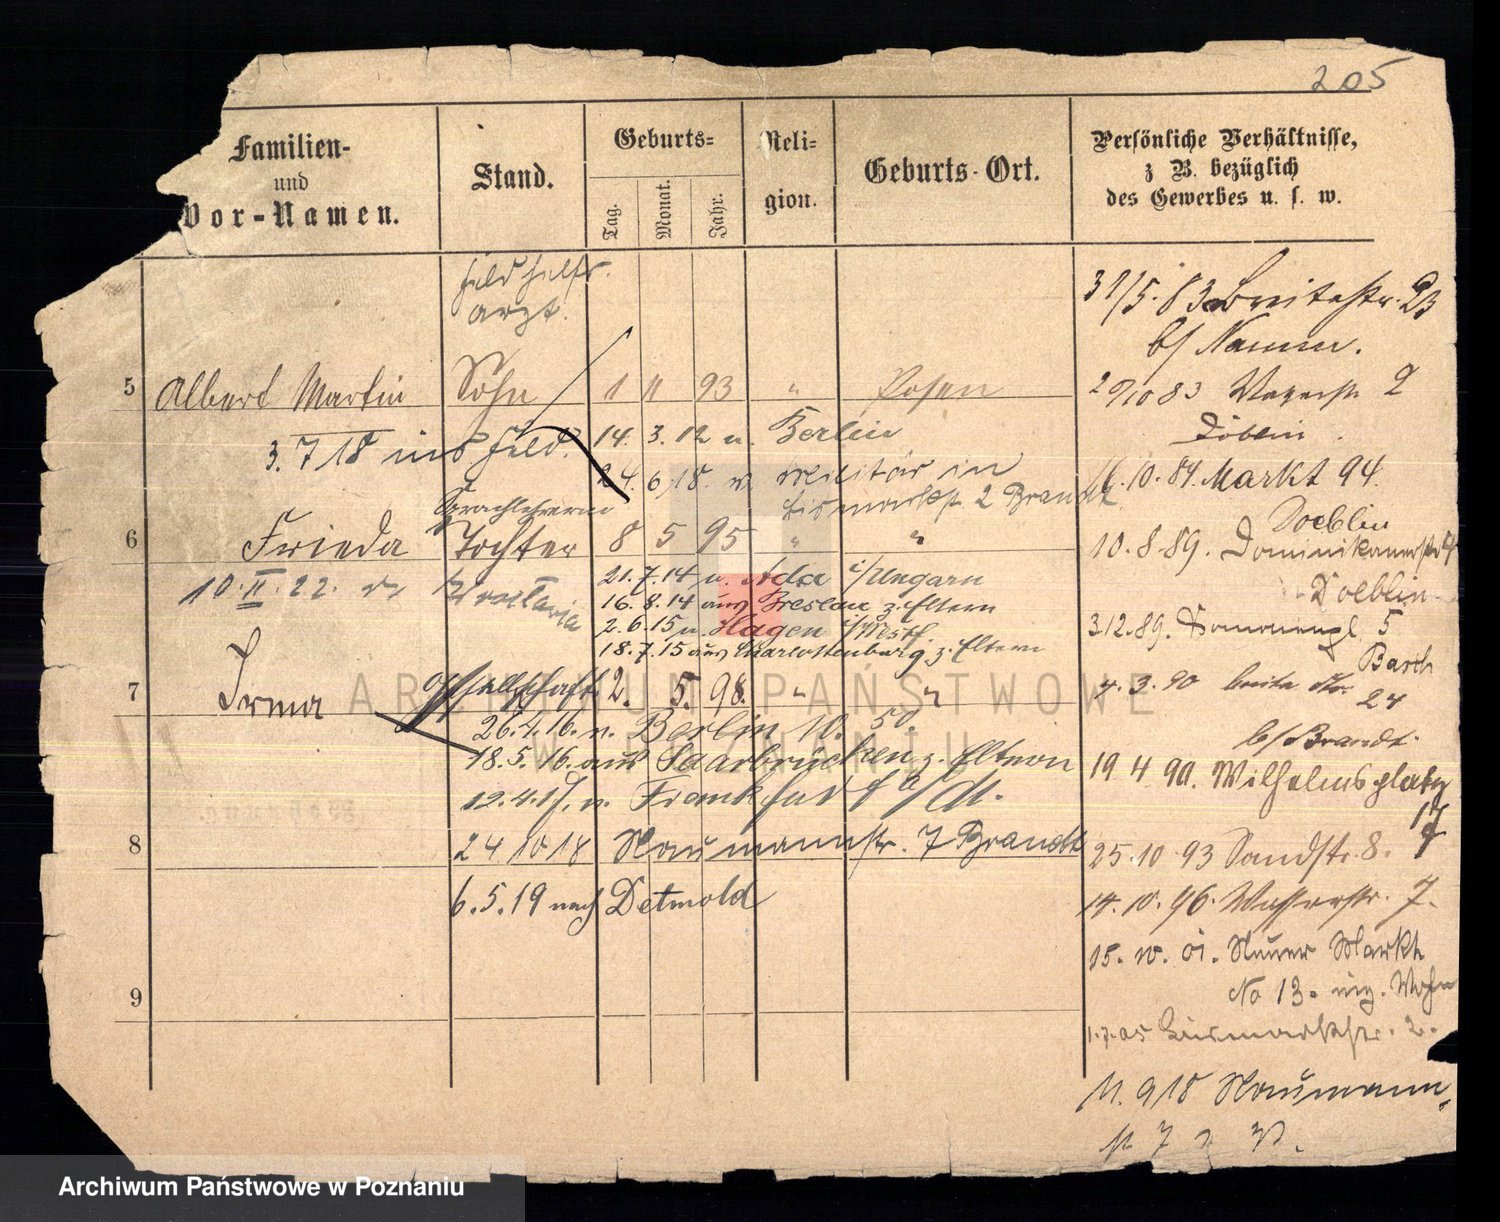 205
Familien-
und
Vor-Namen.
Stand.
Geburts-
Tag.
Monat.
Jahr.
Reli-
gion.
Geburts-Ort.
Persönliche Verhältnisse,
z B. bezüglich
des Gewerbes u. s. w.
Feldhilfs-
arzt.
5 Albert Martin Sohn 1 11 93 " Posen
3. 7 18 ins Feld.
14. 3. 12 n. Berlin
24. 6 18. v. Militär in
Bismarckst. 2 Brandt
Sprachlehrerin
6 Frieda Tochter 8 5 95 " "
10. II. 22.
21. 7. 14 n. Ada i/Ungarn
16. 8. 14 aus Breslau z. Eltern
2. 6. 15 n. Hagen i/Westf.
18. 7. 15 aus Charlottenburg z. Eltern
7 Irma 2. 5. 98. " "
26. 4. 16. n. Berlin W. 50.
18. 5. 16. aus Saarbrücken z. Eltern
12. 4. 17. n. Frankfurt a/M.
8 24 10 18 Naumannstr. 7 Brandt
6. 5. 19 nach Detmold
9
31/5. 83 Breitestr. 23
b/ Namm.
29/10 83 2
Döblin.
16. 10. 84 Markt 94.
Doeblin
10. 8. 89. Dominikanerstr
Doeblin
3. 12. 89. 5
Basch
4. 3. 90 breite Str. 24
b/ Brandt.
19 4 90. Wilhelmsplatz
17
25. 10 93 Sandstr. 8.
14. 10. 96. Wasserstr. 7.
15. 10. 01. Neuer Markt
No 13. eig. Wohn
1. 7. 05 Bismarckstr. 2.
11. 9 18 Naumann
st. 7
ARCHIWUM PAŃSTWOWE
W POZNANIU
Archiwum Państwowe w Poznaniu